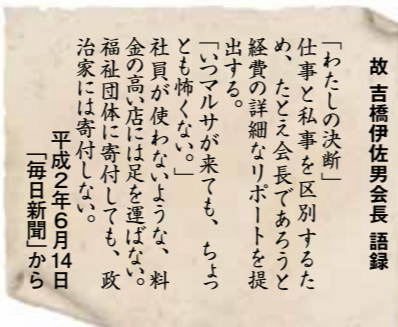 故 吉橋伊佐男会長 語録
「わたしの決断」
仕事と私事を区別するた
め、たとえ会長であろうと
経費の詳細なリポートを提
出する。
「いつマルサが来ても、ちょっ
とも怖くない。」
社員が使わないような、料
金の高い店には足を運ばない。
福祉団体に寄付しても、政
治家には寄付しない。
平成2年6月14日
「毎日新聞」から